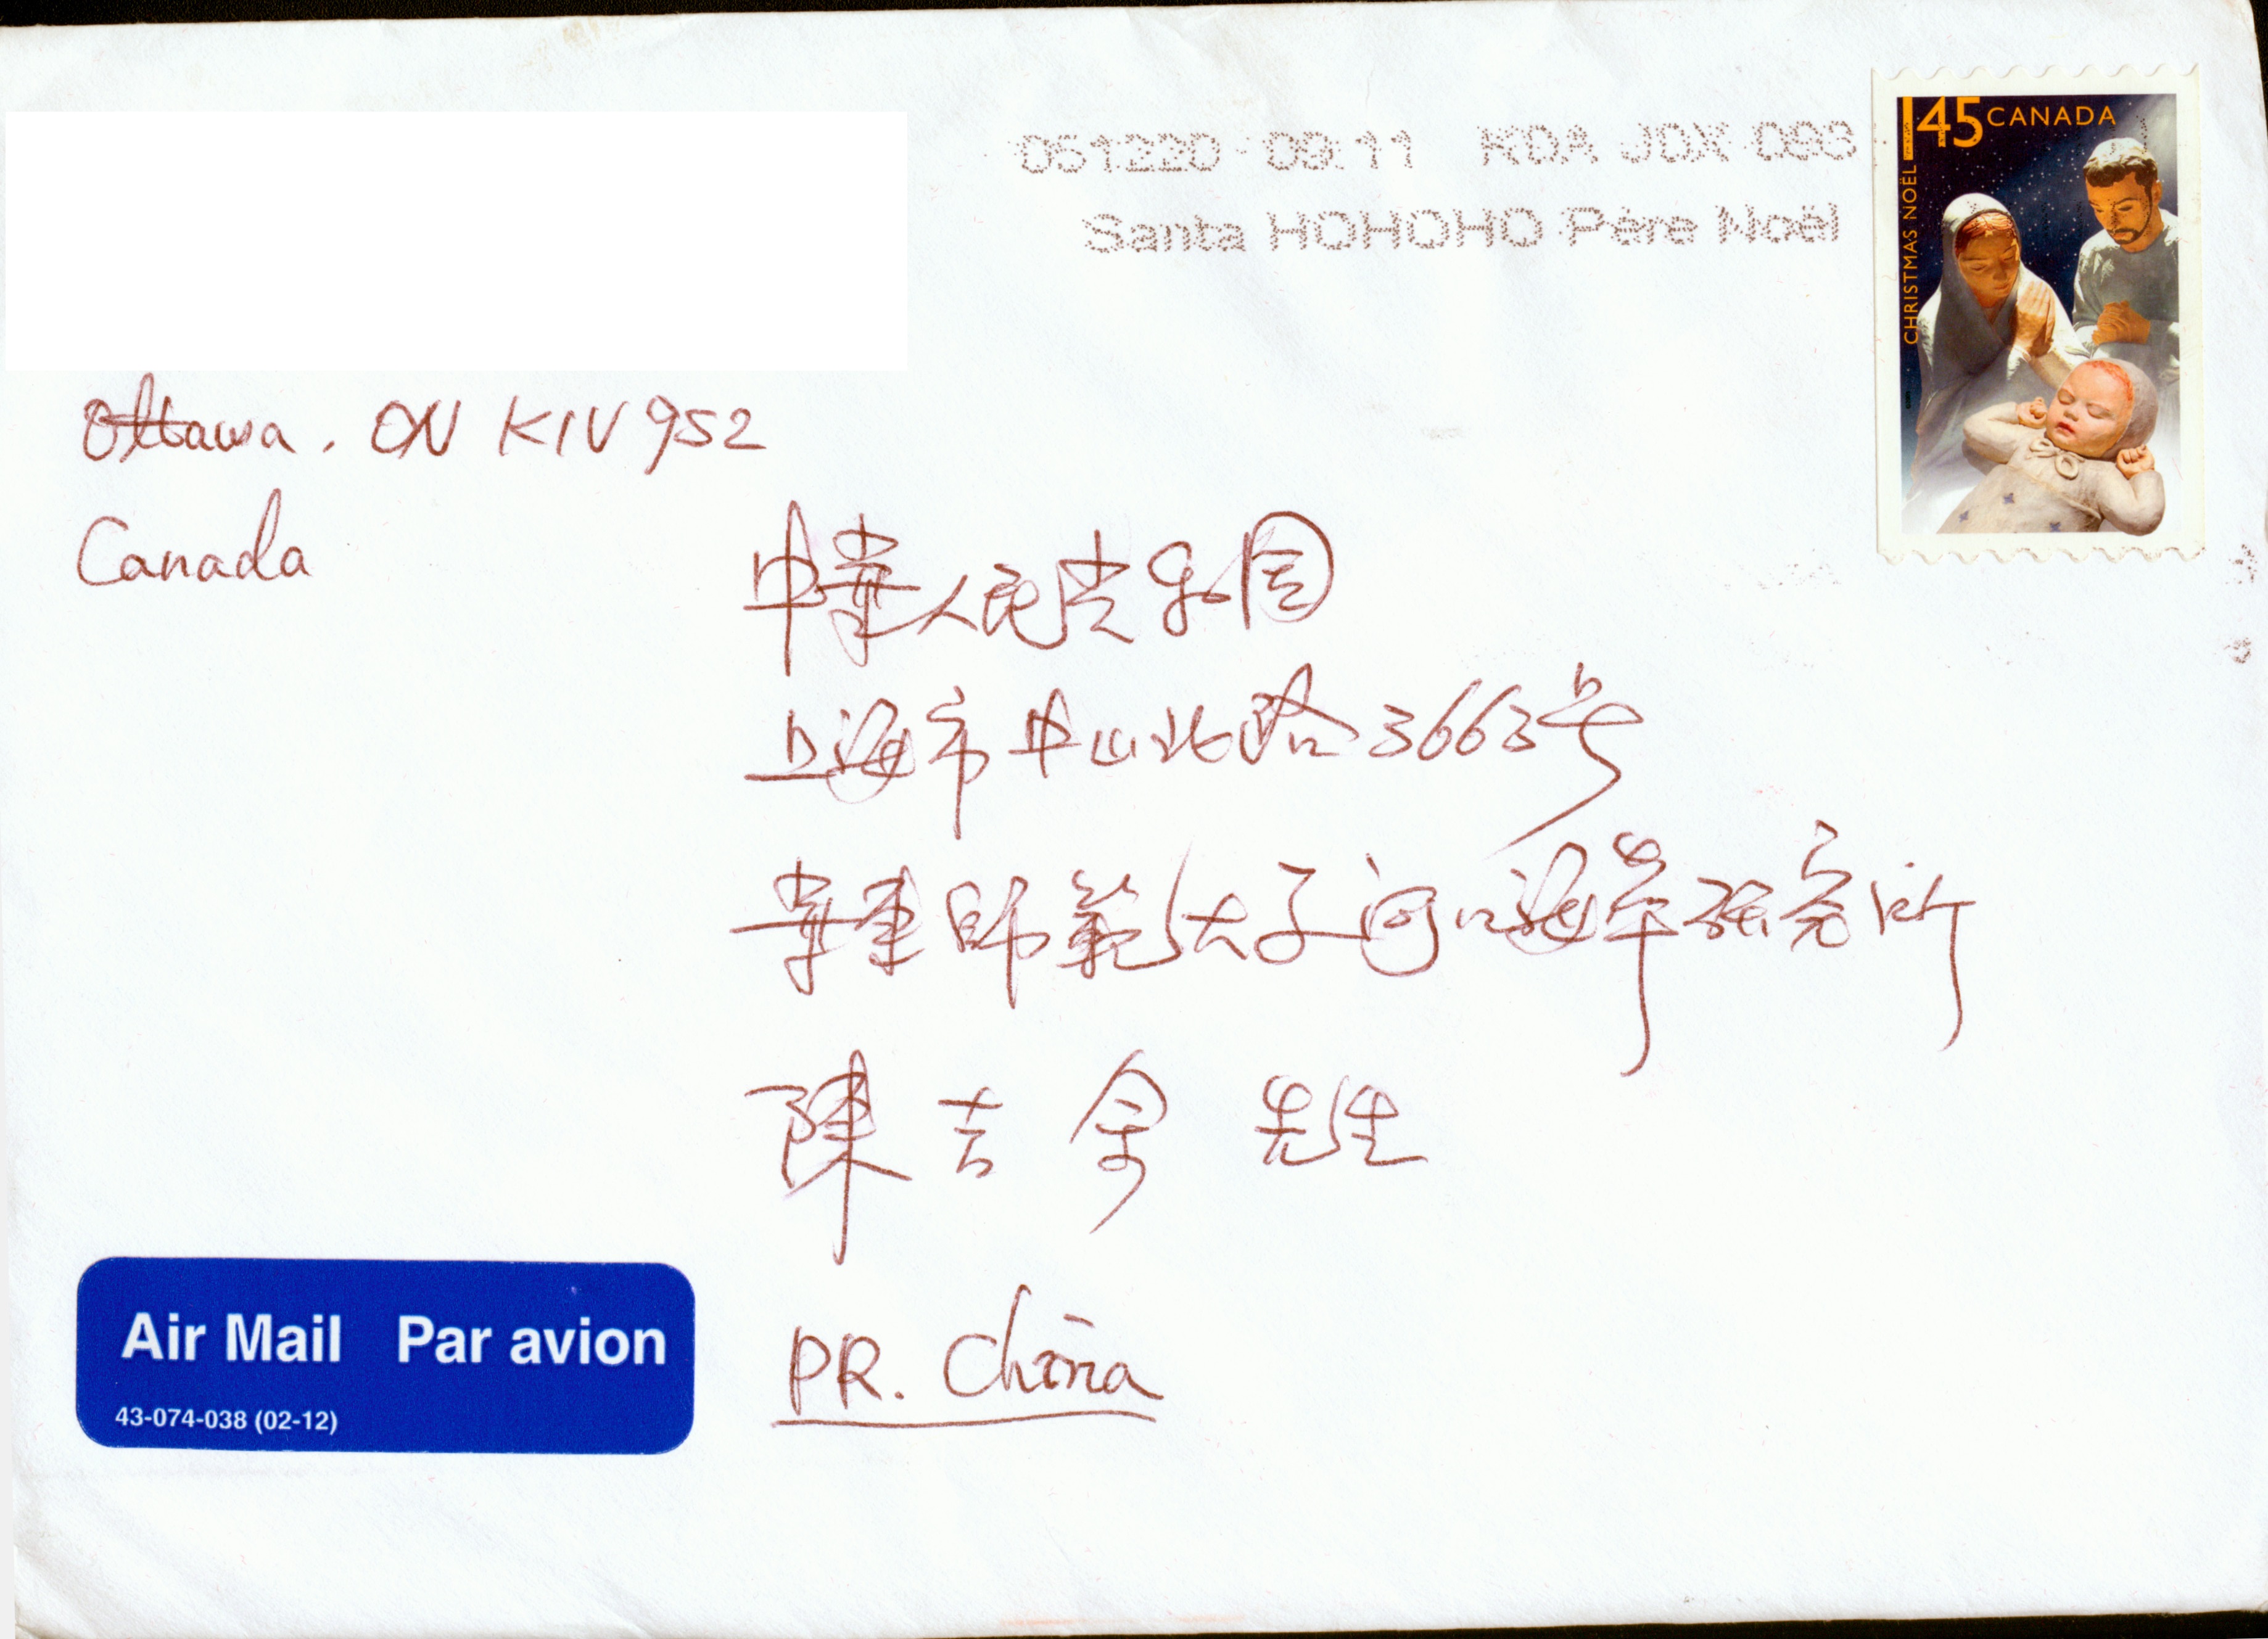 051220 09:11 KDA JDX 093
Santa HOHOHO Père Noël
145 CANADA
CHRISTMAS NOËL
Ottawa, ON K1V 9S2
Canada
中華人民共和国
上海市中山北路3663号
華東師範大学河口海岸研究所
陳吉余 先生
Air Mail Par avion
43-074-038 (02-12)
PR. China